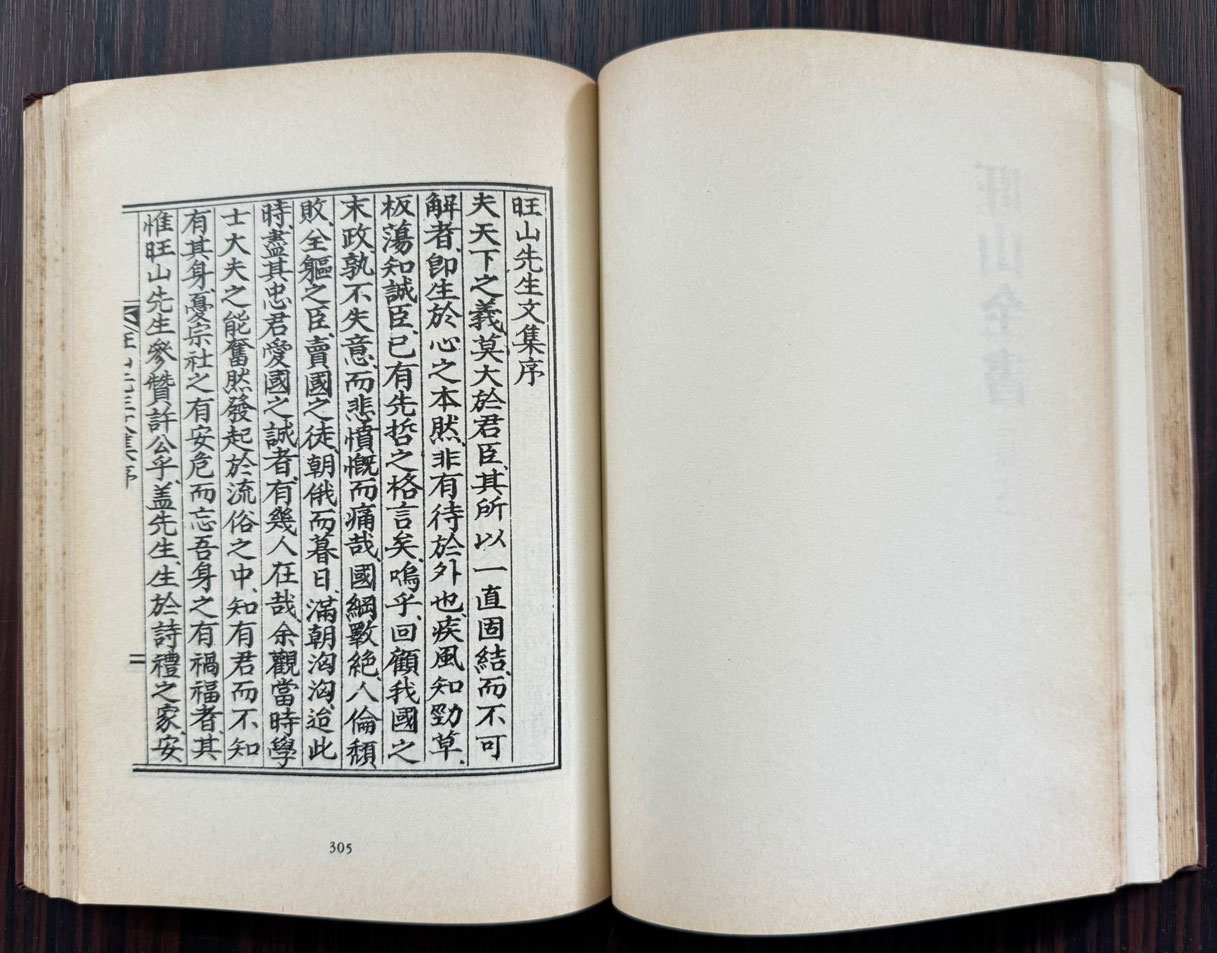 旺山先生文集序
夫天下之義莫大於君臣、其所以一直固結、而不可
解者、卽生於心之本然、非有待於外也、疾風知勁草、
板蕩知誠臣、已有先哲之格言矣、嗚乎、回顧我國之
末政、孰不失意、而悲憤慨而痛哉、國綱斁絶、人倫頹
敗、全軀之臣、賣國之徒、朝俄而暮日、滿朝洶洶、迨此
時、盡其忠君愛國之誠者、有幾人在哉、余觀當時學
士大夫之能奮然發起於流俗之中、知有君而不知
有其身、憂宗社之有安危而忘吾身之有禍福者、其
惟旺山先生參贊許公乎、盖先生、生於詩禮之家、安
旺山先生文集序
一
305
旺山全書